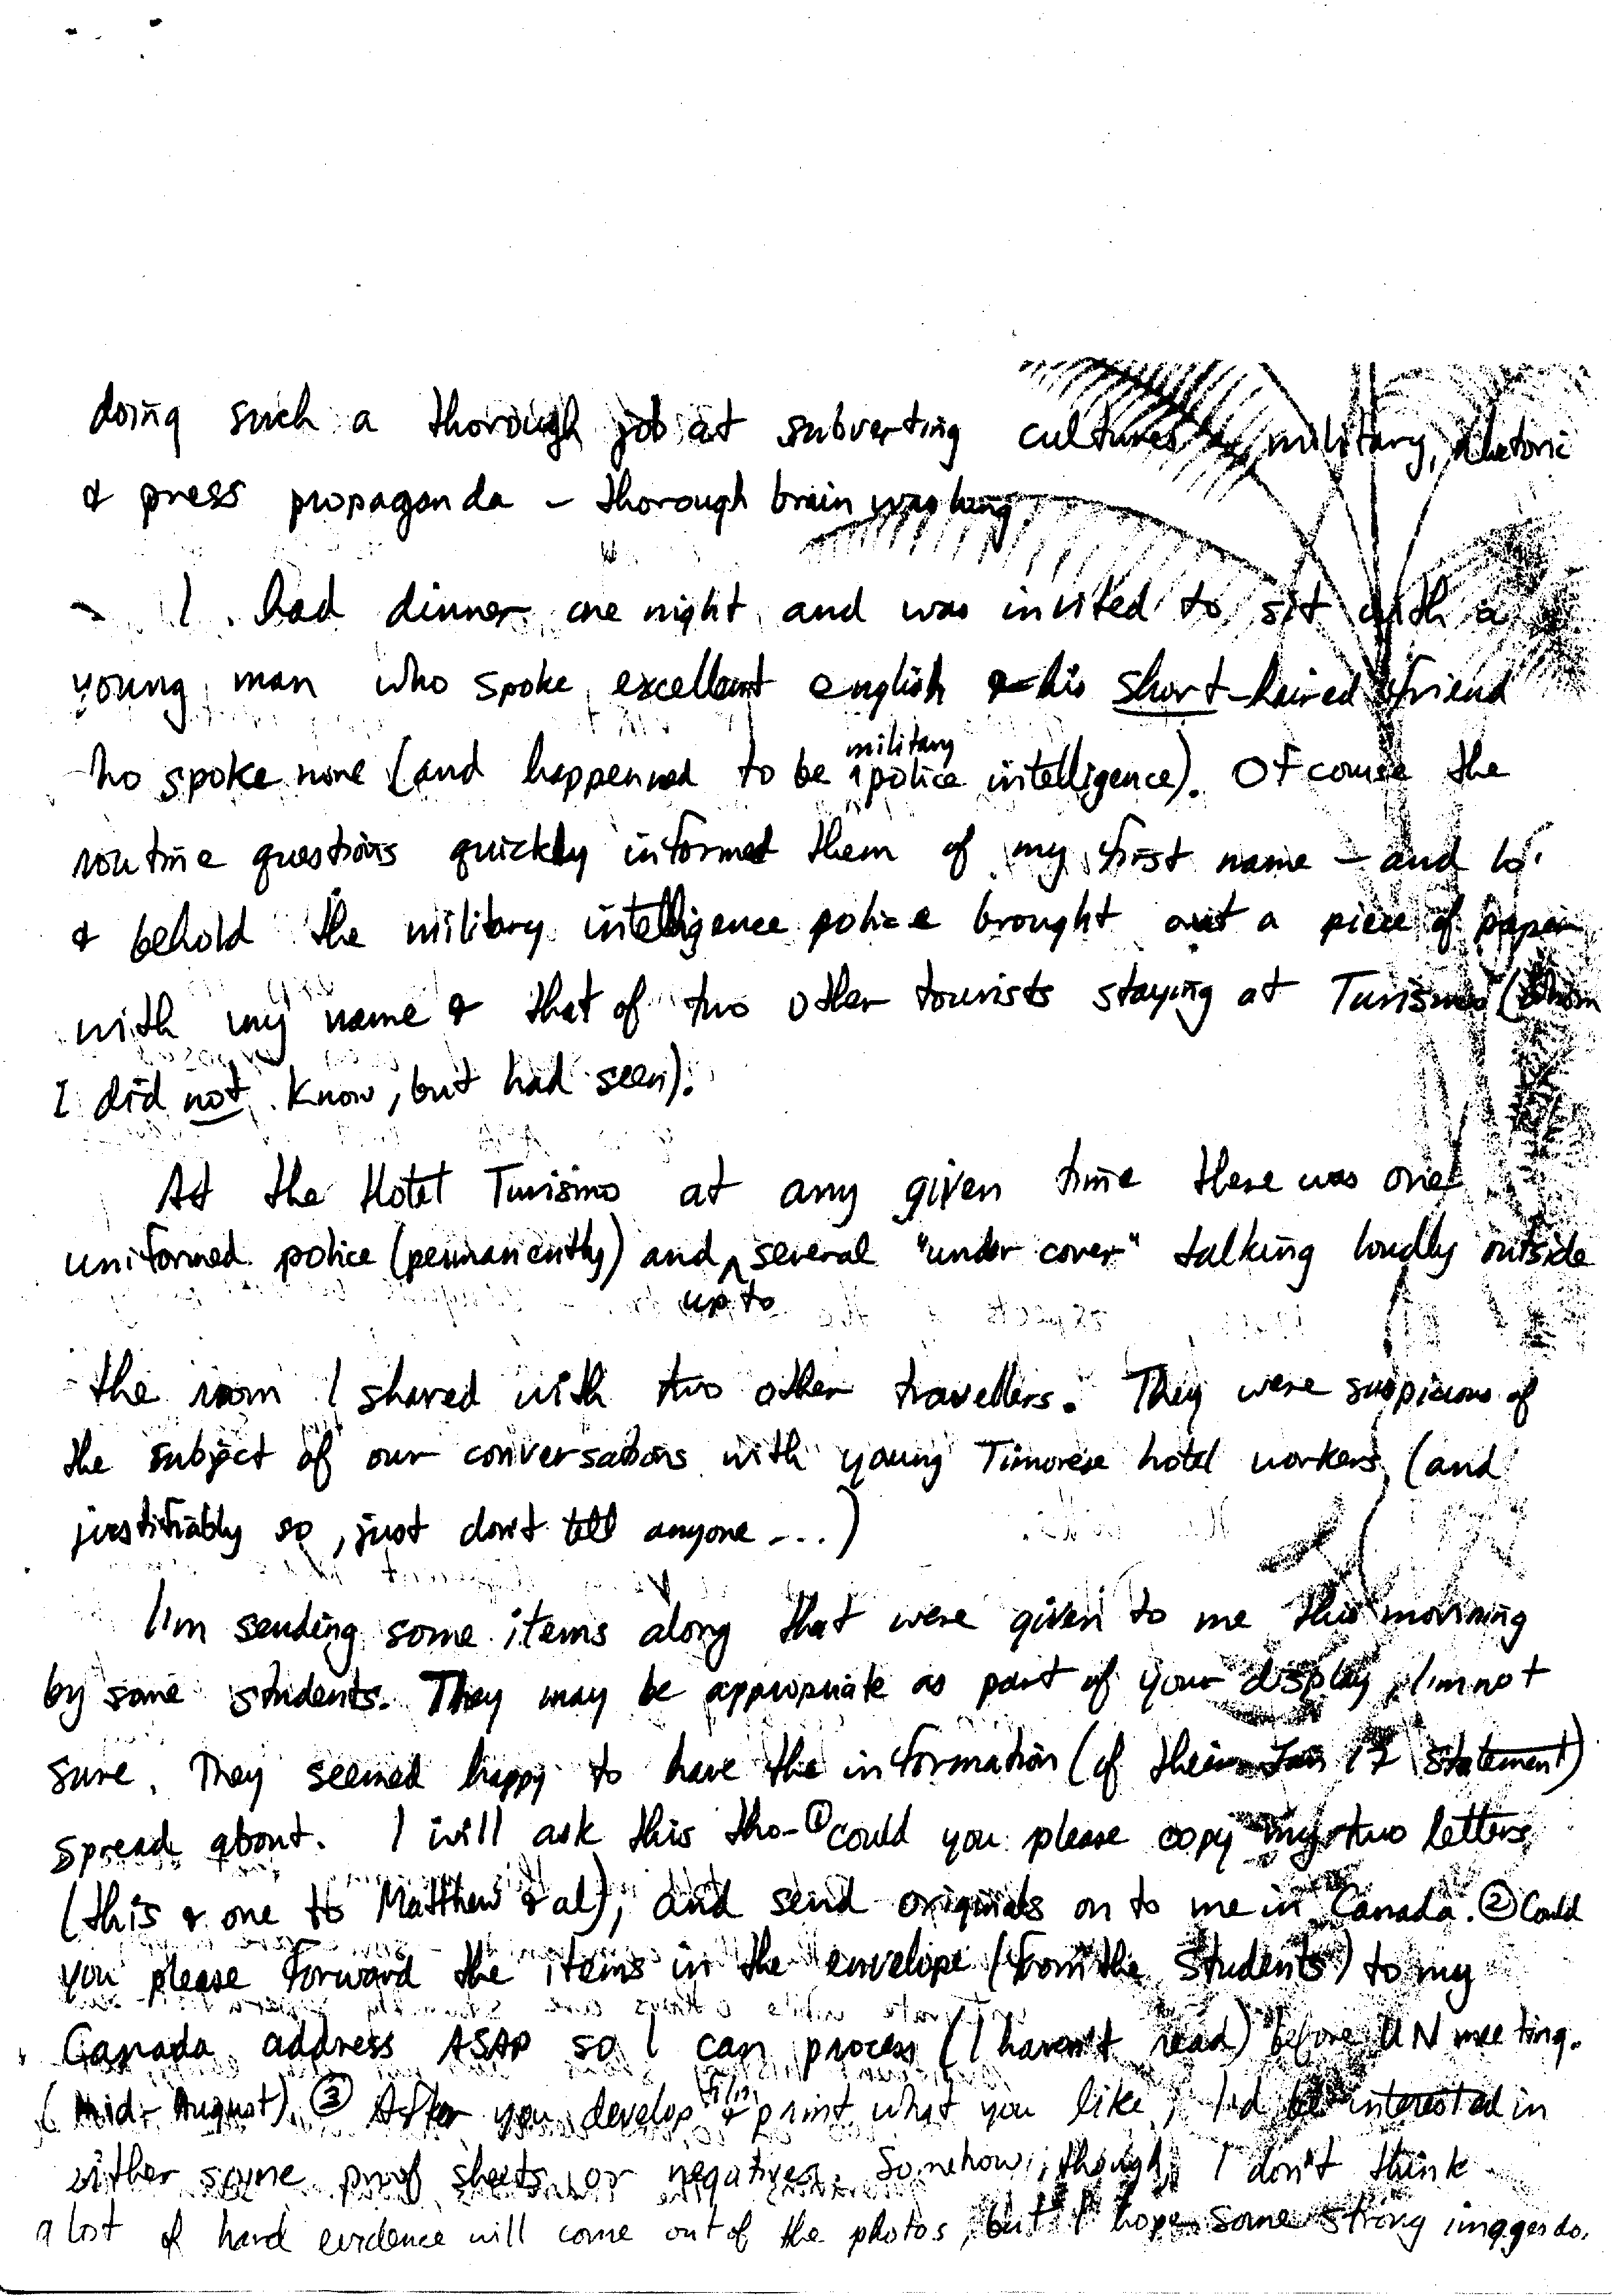 doing such a thorough job at subverting cultures by military, rhetoric
& press propaganda – thorough brain washing
I had dinner one night and was invited to sit with a
young man who spoke excellent english & his short-haired friend
ho spoke none (and happenned to be military police intelligence). Of course the
routine questions quickly informed them of my first name – and lo
& behold the military intelligence police brought out a piece of paper
with my name & that of two other tourists staying at Turismo (whom
I did not know, but had seen).
At the Hotel Turismo at any given time there was one
uniformed police (permanently) and up to several "under cover" talking loudly outside
the room I shared with two other travellers. They were suspicious of
the subject of our conversations with young Timorese hotel workers (and
justifiably so, just don't tell anyone ...)
I'm sending some items along that were given to me this morning
by some students. They may be appropriate as part of your display, I'm not
sure. They seemed happy to have the information (of their Jan 17 statement)
spread about. I will ask this tho- ① could you please copy my two letters
(this & one to Matthew & al), and send originals on to me in Canada. ② Could
you please forward the items in the envelope (from the students) to my
Canada address ASAP so I can process (I haven't read) before UN meeting.
(Mid- August). ③ After you develop film & print what you like, I'd be interested in
either some proof sheets or negatives. Somehow, though, I don't think
a lost of hard evidence will come out of the photos, but I hope some strong images do.